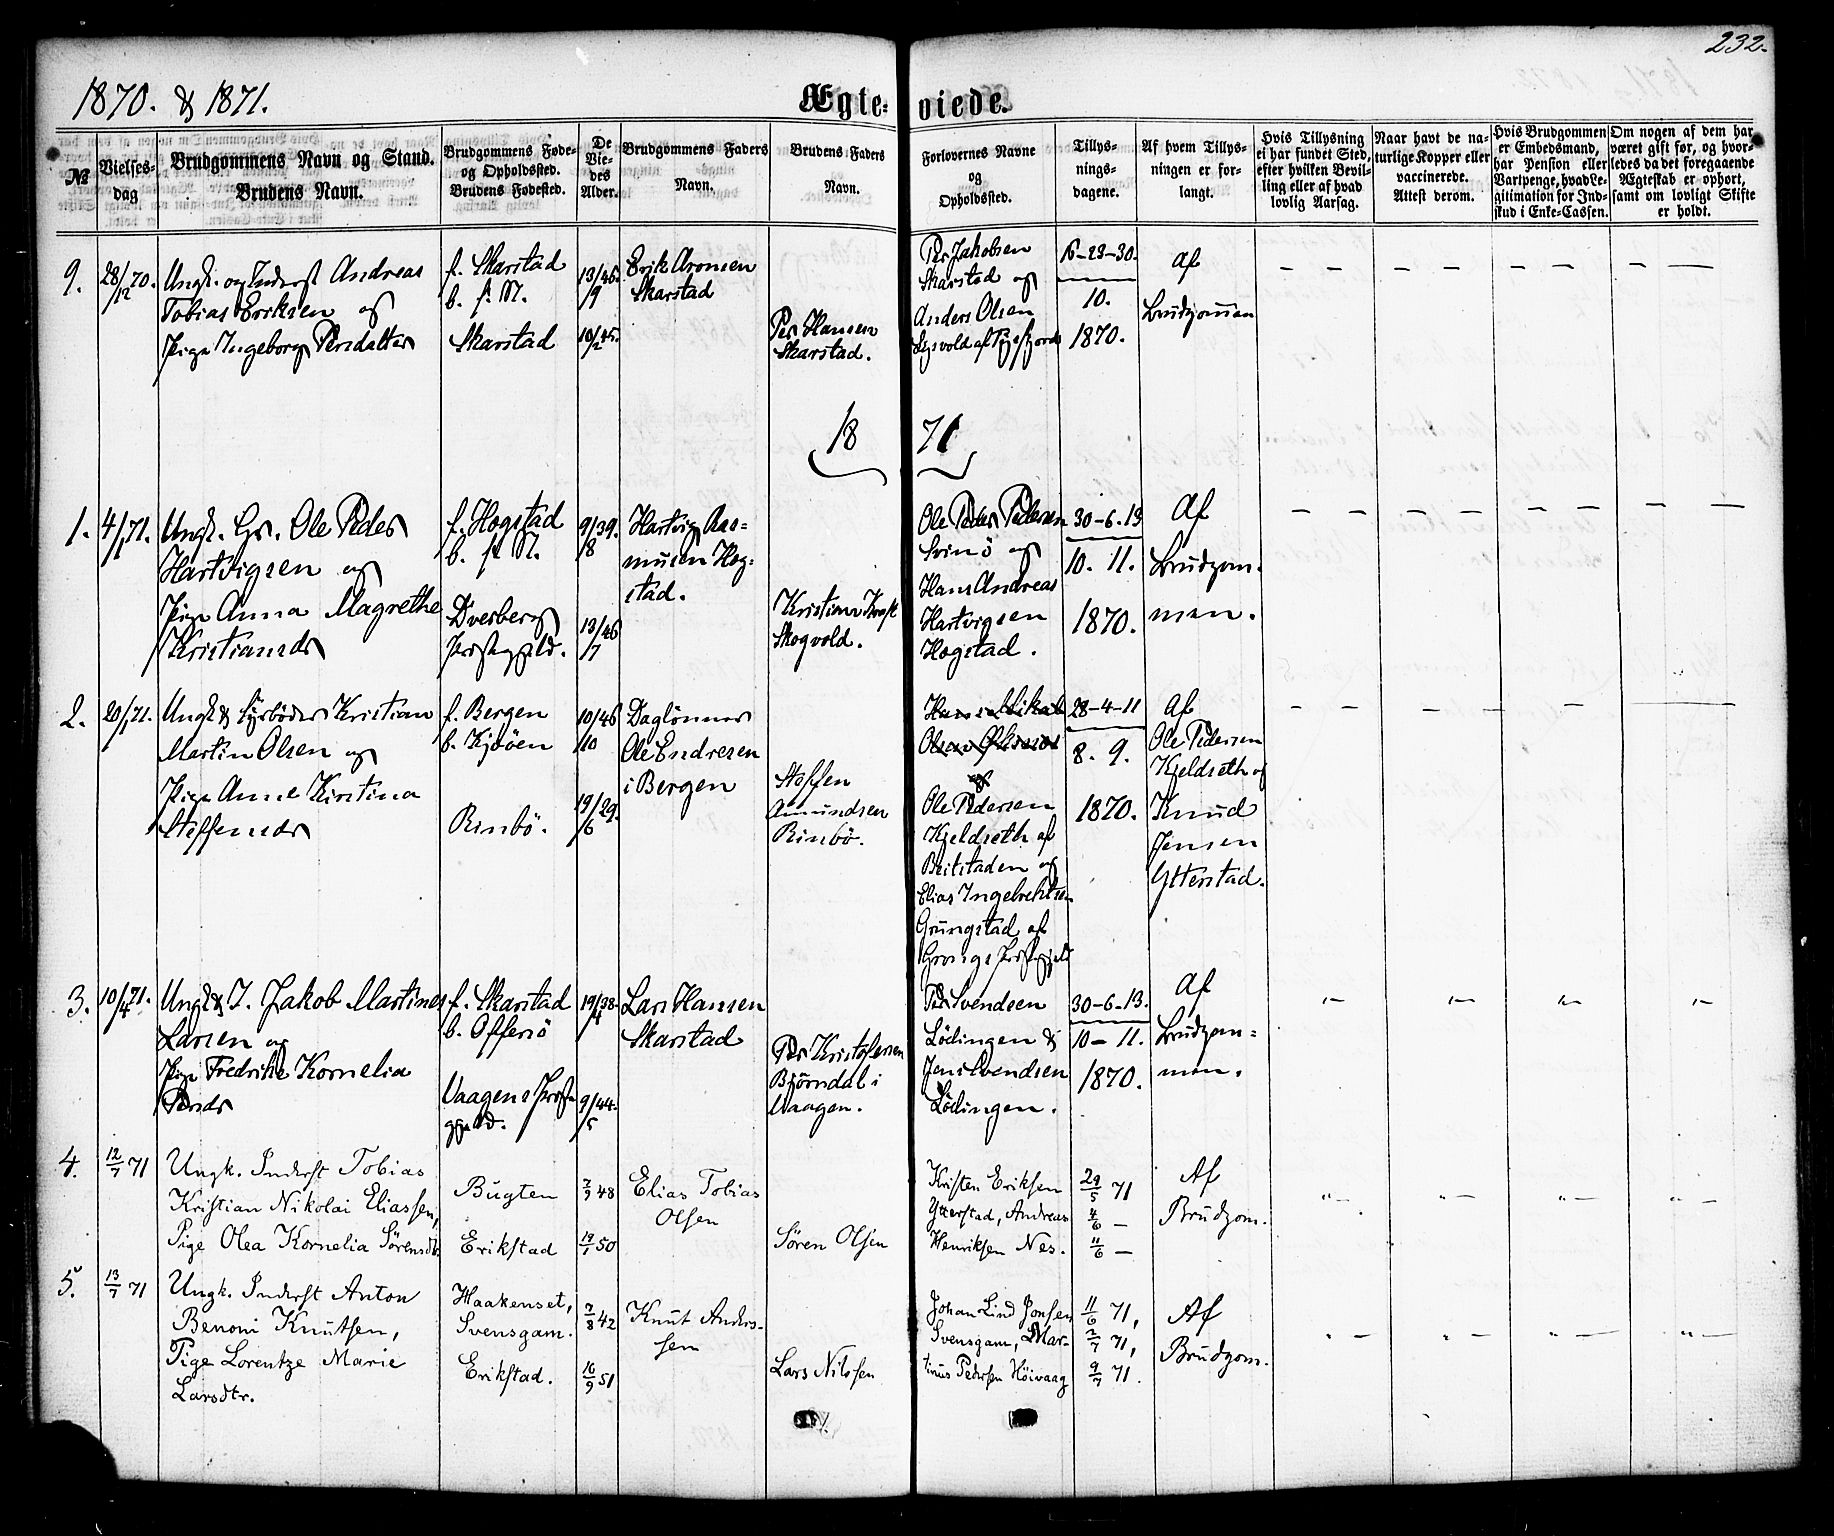 232.
1870. & 1871.
Ægteviede.
№
Vielses-
dag
Brudgommens Navn og Stand.
Brudens Navn.
Brudgommens Føde-
og Opholdssted.
Brudens Fødested.
De
Vie-
des
Alder.
Brudgommens Faders
Navn.
Brudens Faders
Navn.
Forlovernes Navne
og
Opholdssted.
Tillys-
nings-
dagene.
Af hvem Tillys-
ningen er for-
langt.
Hvis Tillysning
ei har fundet Sted,
efter hvilken Bevil-
ling eller af hvad
lovlig Aarsag.
Naar havt de na-
turlige Kopper eller
vaccinerede.
Attest derom.
Hvis Brudgommen
er Embedsmand,
har Pension eller
Vartpenge, hvad Le-
gitimation for Ind-
skud i Enke-Cassen.
Om nogen af dem har
været gift før, og hvor-
ledes da det foregaaende
Ægteskab er ophørt,
samt om lovligt Skifte
er holdt.
9.
28/12 70.
Ungk. og Inderst Andreas
Tobias Eriksen og
Pige Ingeborg Persdatter
f. Skarstad
b. p. M.
Skarstad
13/9 46.
10/2 45.
Erik Aronsen
Skarstad
Per Hansen
Skarstad.
Per Jakobsen
Skarstad og
Anders Olsen
af
-23-30.
10.
1870.
Af
Brudgommen
18 71
1.
4/1 71.
Ungk. Gs. Ole Peder
Hartvigsen og
Pige Anna Magrethe
Kristiansdr
f. Hogstad
b. p. M.
Dverberg
Præstegjeld.
9/8 39.
13/7 46
Hartvig Ras-
musen Hog-
stad.
Kristian
Skogvold.
Ole Peder Pedersen
Svinö og
Hans Andreas
Hartvigsen
Hogstad.
30-6.13
10. 11.
1870.
Af
Brudgom-
men.
2.
20/1 71.
Ungk & Fyrböder Kristian
Martin Olsen og
Pige Anne Kirstina
Steffensdr
f. Bergen
b. Kjööen
Rinbö.
10/10 46
19/6 29.
Daglönner
Ole Endresen
i Bergen
Steffen
Amundsen
Rinbö.
Hans Mikal
Olsen
og
Ole Pedersen
Kjeldseth af
Beitstaden og
Elias Ingebrektsen
Grungstad af
Grongs Præstegjeld
28-4-11
8. 9.
1870.
Af
Ole Pedersen
Kjeldseth og
Knud
Jensen
Ytterstad.
3.
10/4 71.
Ungk & I. Jakob Martines
Larsen og
Pige Fredrikke Kornelia
Persdr
f. Skarstad
b. Offersö
Vaagens Præste-
gjeld.
19/4 38.
9/5 44.
Lars Hansen
Skarstad
Per Kristofersen
Björndal i
Vaagen.
Per Svendsen
Lödingen &
Jens Svendsen
Lödingen.
30-6-13.
10-11.
1870.
Af
Brudgom-
men.
4.
12/7 71
Ungk. Inderst Tobias
Kristian Nikolai Eliassen,
Pige Olea Kornelia Sörensdtr.
Bugten
Erikstad
48
50
Elias Tobias
Olsen
Sören Olsen
Kristen Eriksen
Ytterstad, Andreas
Henriksen Nes.
29/5 71
4/6 —
11/6 —
Af
Brudgom.
5.
13/7 71
Ungk. Inderst Anton
Benoni Knutsen,
Pige Lorentze Marie
Larsdtr.
Haakenset,
Svensgam.
Erikstad.
7/8 42
16/9 51
Knut Anders-
sen
Lars Nilssen
Johan Lind Jonsen
Svensgam, Mar-
tinus Pedersen Höivaag
11/6 71,
2/7 71,
9/7 71.
Af
Brudgom.